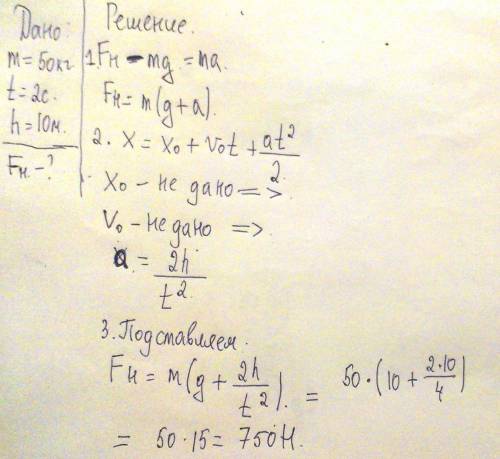 Дано:
m = 50кг
t = 2с.
h = 10м.
Fн - ?
Решение.
1 Fн - mg = ma.
Fн = m(g + a).
2. X = X₀ + V₀t + at²/2
X₀ - не дано =>
V₀ - не дано =>
a = 2h/t².
3. Подставляем.
Fн = m(g + 2h/t²). = 50·(10 + 2·10/4)
= 50·15 = 750Н.